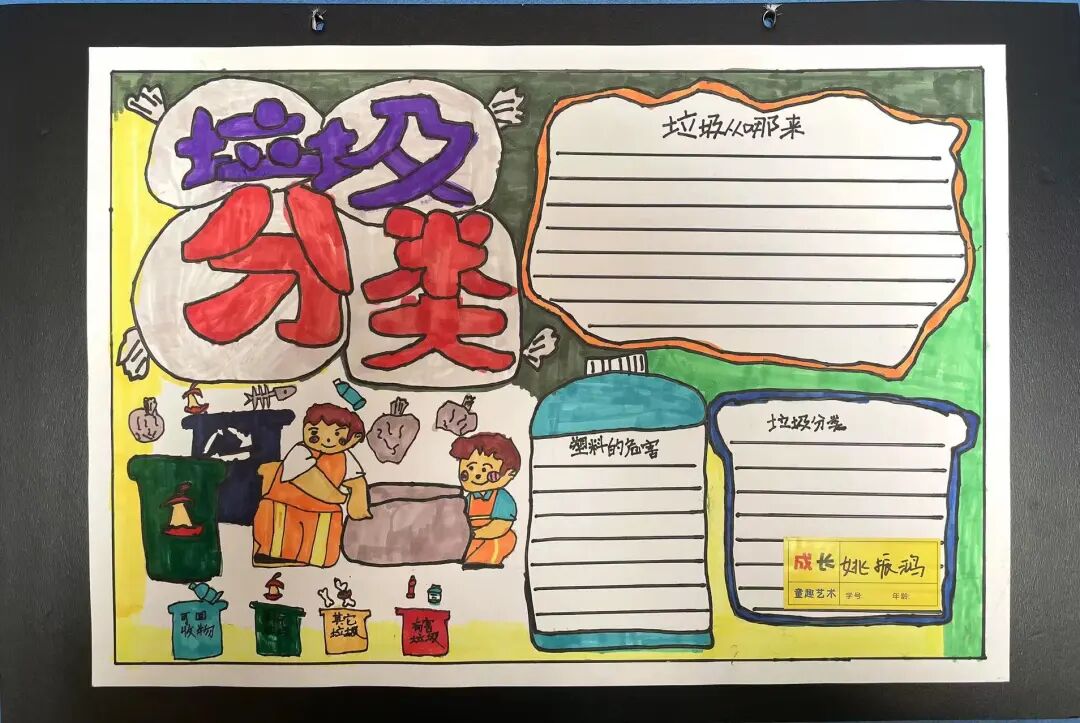 垃圾
分类
垃圾从哪来
塑料的危害
垃圾分类
可回
收物
其它
垃圾
有害
垃圾
成长
童趣艺术
姚振鸿
学号
年龄: